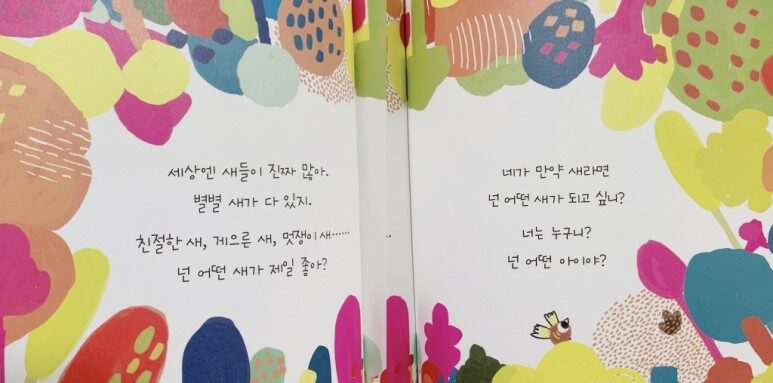 세상엔 새들이 진짜 많아.
별별 새가 다 있지.
친절한 새, 게으른 새, 멋쟁이 새……
넌 어떤 새가 제일 좋아?
네가 만약 새라면
넌 어떤 새가 되고 싶니?
너는 누구니?
넌 어떤 아이야?